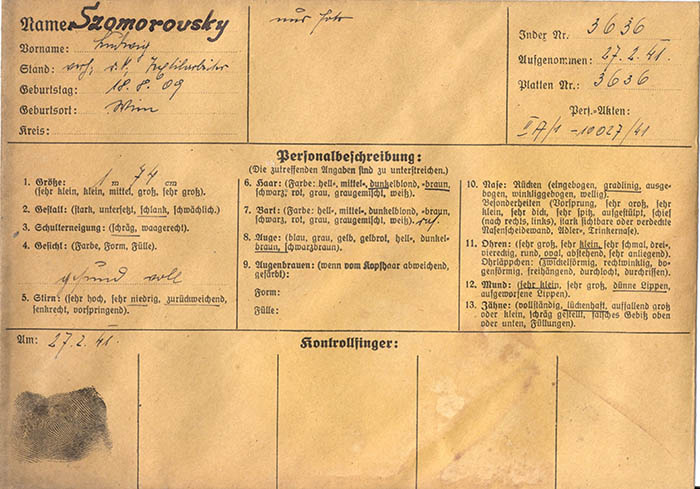 Name: Szomorovsky
Vorname: Ludwig
Stand: verh. r.k. Textilarbeiter
Geburtstag: 18.8.09
Geburtsort: Wien
Kreis:
nur Foto
Index Nr. 3636
Aufgenommen: 27.2.41
Platten Nr.: 3636
Pers.-Akten:
II A/1 - 10027/41
Personalbeschreibung:
(Die zutreffenden Angaben sind zu unterstreichen.)
1. Größe: 1 m 74 cm
(sehr klein, klein, mittel, groß, sehr groß).
2. Gestalt: (stark, untersetzt, schlank, schwächlich.)
3. Schulterneigung: (schräg, waagerecht.)
4. Gesicht: (Farbe, Form, Fülle).
gesund voll
5. Stirn: (sehr hoch, sehr niedrig, zurückweichend,
senkrecht, vorspringend).
6. Haar: (Farbe: hell-, mittel-, dunkelblond, -braun,
schwarz, rot, grau, graugemischt, weiß).
7. Bart: (Farbe: hell-, mittel-, dunkelblond, -braun,
schwarz, rot, grau, graugemischt, weiß).
8. Auge: (blau, grau, gelb, gelbrot, hell-, dunkel-
braun, schwarzbraun).
9. Augenbrauen: (wenn vom Kopfhaar abweichend,
gefärbt):
Form:
Fülle:
10. Nase: Rücken (eingebogen, gradlinig, ausge-
bogen, winkliggebogen, wellig).
Besonderheiten (Vorsprung, sehr groß, sehr
klein, sehr dick, sehr spitz, aufgestülpt, schief
(nach rechts, links), stark sichtbare oder verdeckte
Nasenscheidewand, Adler-, Trinkernase).
11. Ohren: (sehr groß, sehr klein, sehr schmal, drei-,
viereckig, rund, oval, abstehend, sehr anliegend).
Ohrläppchen: (zwickelförmig, rechtwinklig, bo-
genförmig, freihängend, durchlocht, durchrissen).
12. Mund: (sehr klein, sehr groß, dünne Lippen,
aufgeworfene Lippen).
13. Zähne: (vollständig, lückenhaft, auffallend groß
oder klein, schräg gestellt, falsches Gebiß oben
oder unten, Füllungen).
Am: 27.2.41.
Kontrollfinger: